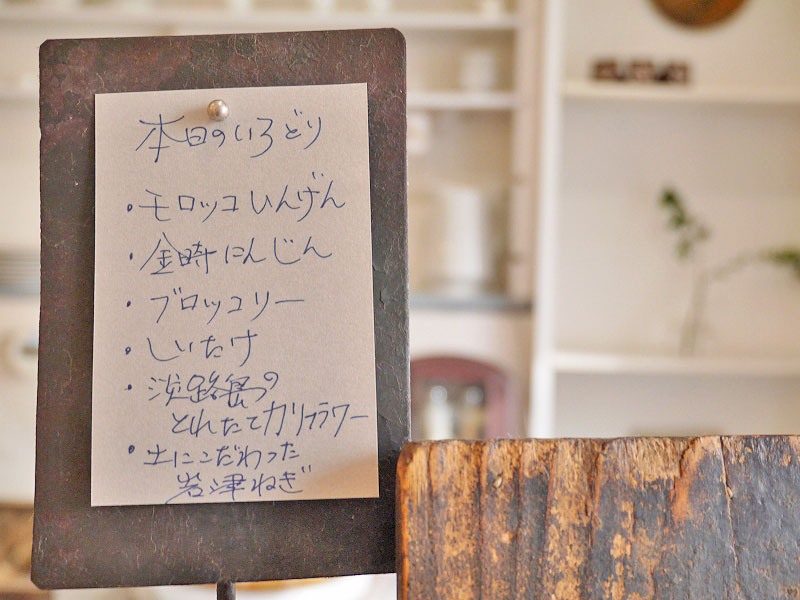 本日のいろどり
・モロッコいんげん
・金時にんじん
・ブロッコリー
・しいたけ
・淡路島の
とれたてカリフラワー
・土にこだわった
岩津ねぎ